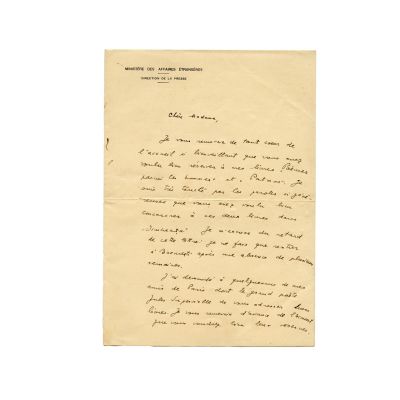 MINISTÈRE DES AFFAIRES ÉTRANGÈRES
DIRECTION DE LA PRESSE
Chère Madame,
Je vous remercie de tout cœur de
l'accueil si bienveillant que vous avez
voulu bien réserver à mes livres Poèmes
Je
suis très touché par les paroles si
que vous avez voulu bien
consacrer à ces deux livres dans
Je m'excuse du retard
de cette lettre. je ne fais que rentrer
à București après une absence de plusieurs
semaines.
J'ai demandé à quelques-uns de mes
amis de Paris dont le grand poète
Jules Supervielle de vous adresser leurs
livres. Je vous remercie d'avance de l'accueil
que vous voudrez bien leur réserver.